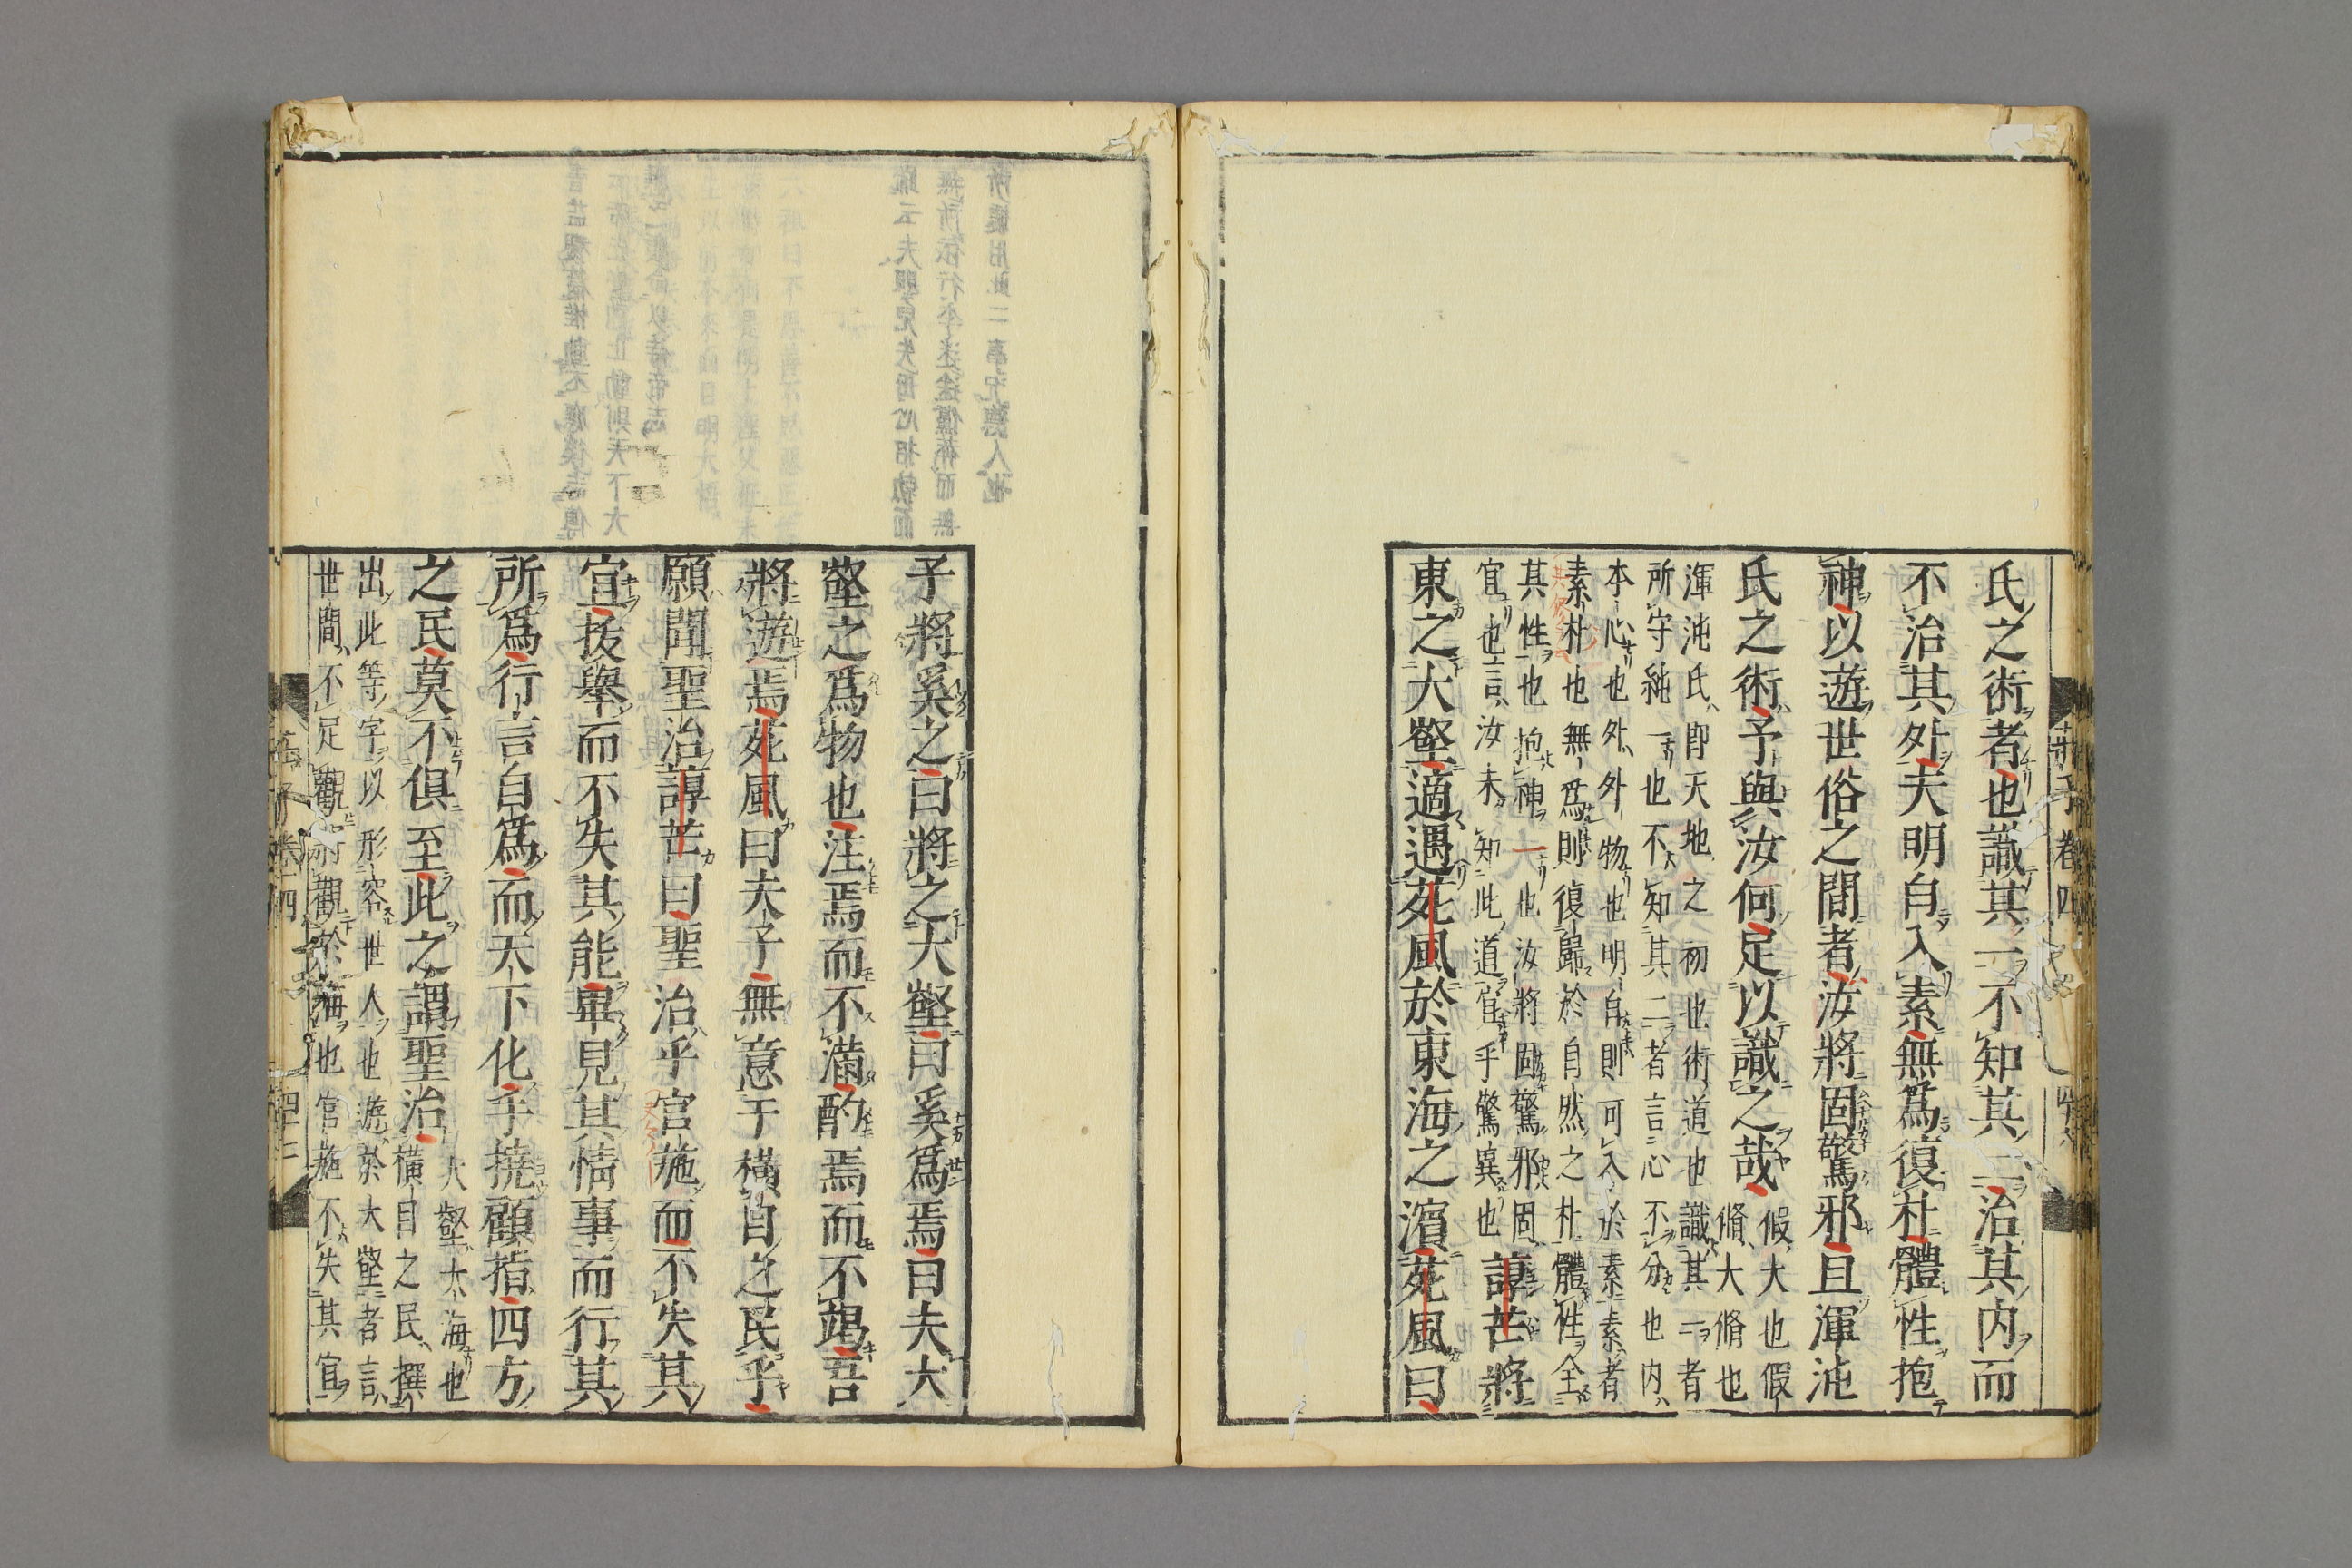 氏之術者也識其一不知其二治其内而
不治其外夫明白入素無爲復朴體性抱
神以遊世俗之間者汝將固驚邪且渾沌
氏之術予與汝何足以識之哉
假大也假
脩大脩也
渾沌氏即天地之初也術道也識其一者
所守純一也不知其二者言心不分也内
本心也外外物也明白則可入於素素者
素朴也無爲則復歸於自然之朴體性全
其性也抱神一也汝將固驚邪固
宜也言汝未知此道宜乎驚異也諄芒將
東之大壑適遇苑風於東海之濵苑風曰
莊子卷四
子將奚之曰將之大壑曰奚爲焉曰夫大
壑之爲物也注焉而不滿酌焉而不竭吾
將遊焉苑風曰夫子無意于横目之民乎
願聞聖治諄芒曰聖治乎官施而不失其
宜拔舉而不失其能畢見其情事而行其
所爲行言自爲而天下化手撓顧指四方
之民莫不俱至此之謂聖治
大壑大海也
横目之民撰
出此等字以形容世人也遊於大壑者言
世間不足觀觀於海也官施不失其宜
莊子卷四